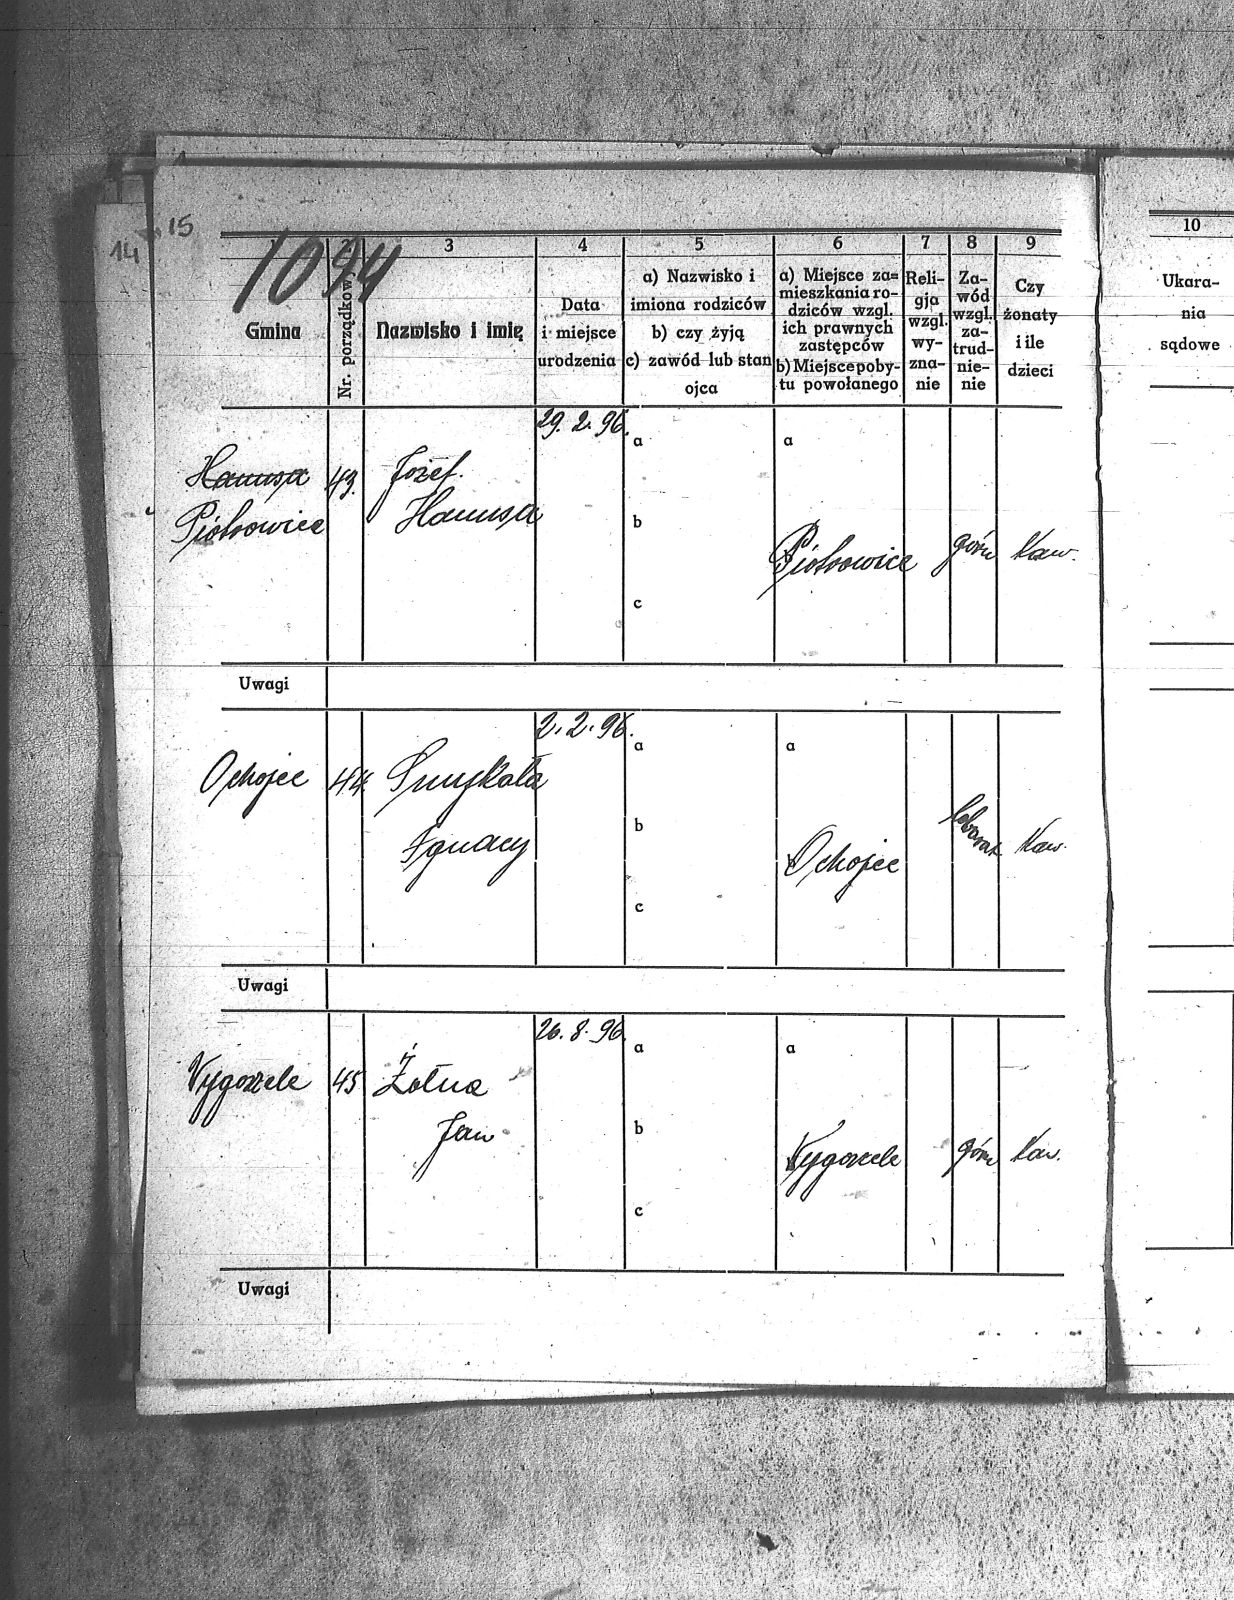 15
14
1094
1
2
3
4
5
6
7
8
9
10
Gmina
Nr. porządkowy
Nazwisko i imię
Data
i miejsce
urodzenia
a) Nazwisko i
imiona rodziców
b) czy żyją
c) zawód lub stan
ojca
a) Miejsce za=
mieszkania ro-
dziców wzgl.
ich prawnych
zastępców
b) Miejsce poby-
tu powołanego
Reli-
gja
wzgl.
wy-
zna-
nie
Za-
wód
wzgl.
za-
trud-
nie-
nie
Czy
żonaty
i ile
dzieci
Ukara-
nia
sądowe
29. 2. 96.
Hanusa
Piotrowice
43.
Józef.
Hanusa
a
b
c
a
Piotrowice
górn
Kaw.
Uwagi
2. 2. 96.
Ochojec
44.
Smykała
Ignacy
a
b
c
a
Ochojec
Kaw.
Uwagi
26. 8. 96.
Wygorzele
45
Żołna
Jan
a
b
c
a
Wygorzele
górn
Kaw.
Uwagi